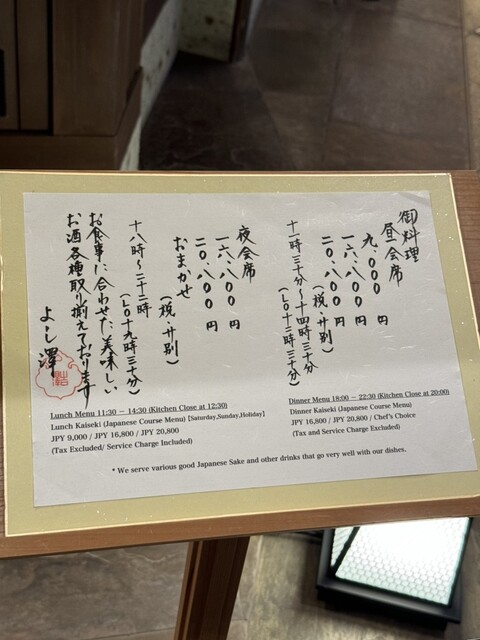 御料理
昼会席
九、〇〇〇 円
一六、八〇〇 円
二〇、八〇〇 円
（税・サ別）
十一時三十分〜十四時三十分
（LO十二時三十分）
夜会席
一六、八〇〇 円
二〇、八〇〇 円
おまかせ
（税・サ別）
十八時〜二十二時
（LO十九時三十分）
お食事に合わせた美味しい
お酒各種取り揃えております
よし澤
Lunch Menu 11:30 − 14:30 (Kitchen Close at 12:30)
Lunch Kaiseki (Japanese Course Menu) [Satorday,Sunday,Holiday]
JPY 9,000 / JPY 16,800 / JPY 20,800
(Tax Excluded/ Service Charge Included)
Dinner Menu 18:00 − 22:30 (Kitchen Close at 20:00)
Dinner Kaiseki (Japanese Course Menu)
JPY 16,800 / JPY 20,800 / Chef's Choice
(Tax and Service Charge Excluded)
* We serve various good Japanese Sake and other drinks that go very well with our dishes.